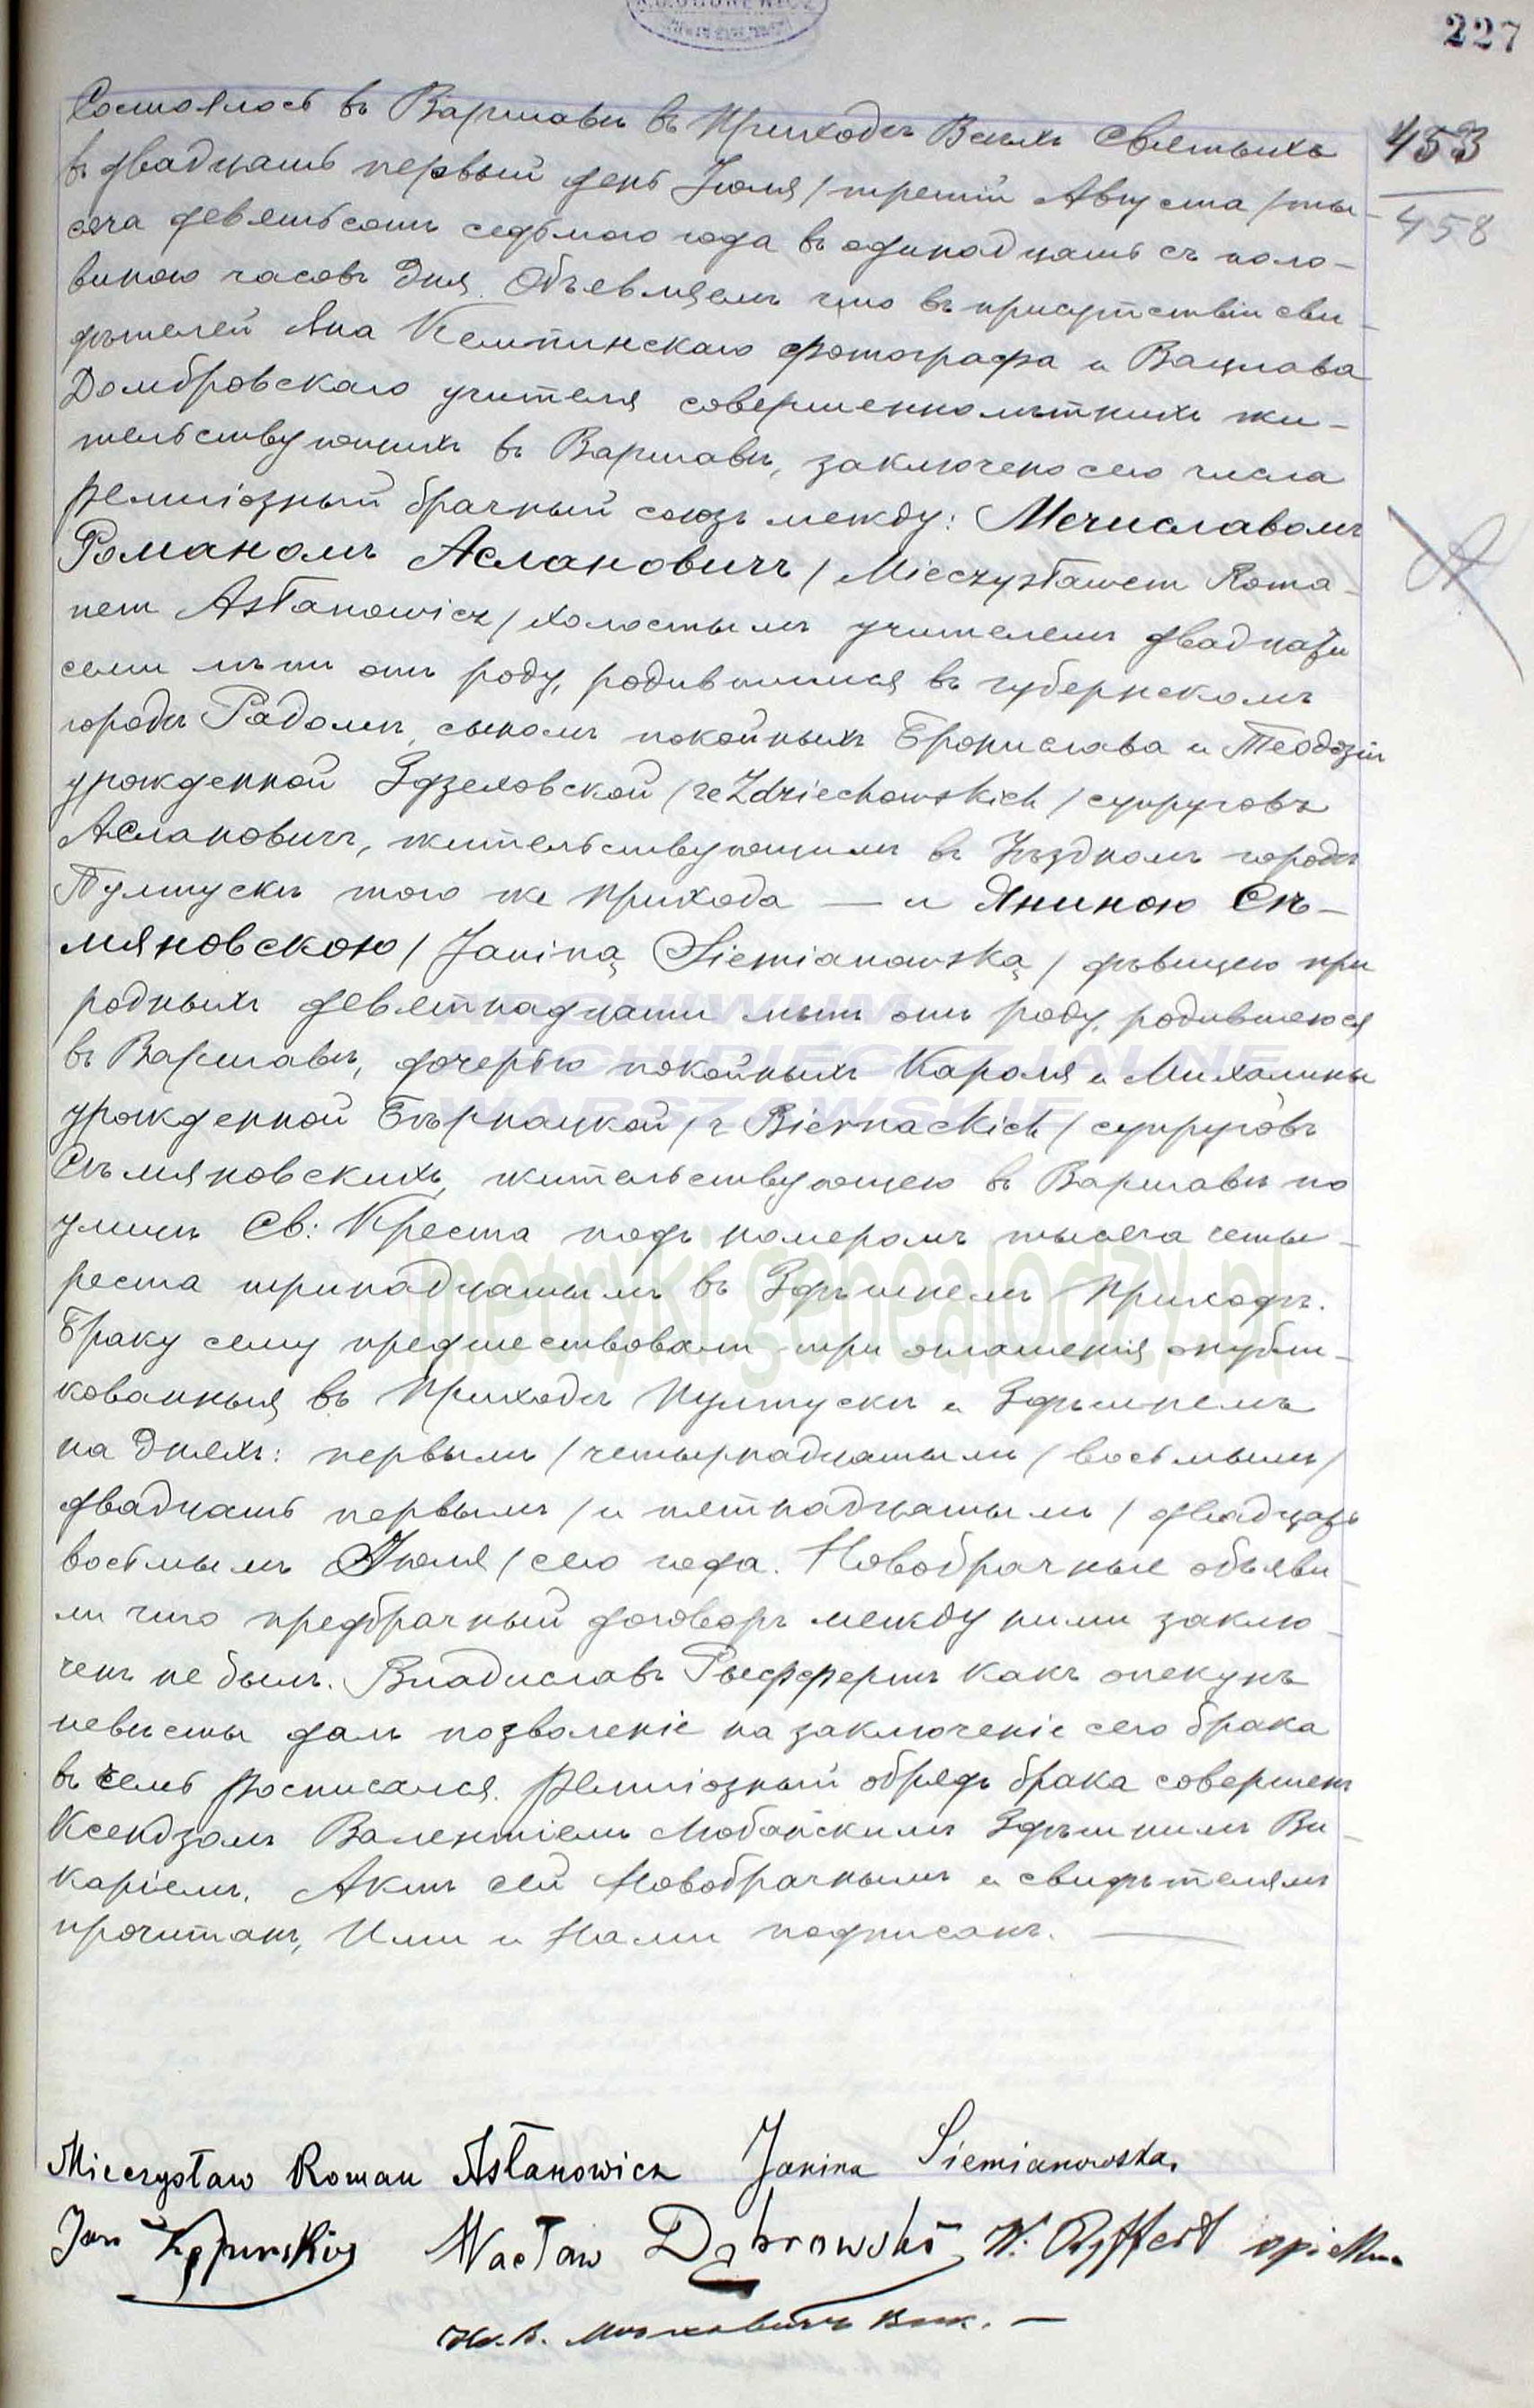 227
453
458
Состоялось въ Варшавѣ въ Приходѣ Всѣхъ Святыхъ
въ двадцать первый день Іюля / третій Августа / ты-
сяча девятьсотъ седьмого года въ одинадцать съ поло-
виною часовъ дня. Объявляемъ что въ присутствіи сви-
дѣтелей Яна Кемпинскаго фотографа и Вацлава
Домбровскаго учителя совершеннолѣтнихъ жи-
тельствующихъ въ Варшавѣ, заключено сего числа
религіозный брачный союзъ между: Мечиславомъ
Романомъ Аслановичъ / Mieczysławem Roma-
nem Asłanowicz / холостымъ учителемъ двадцати
семи лѣтъ отъ роду, родившимся въ губернскомъ
городѣ Радомѣ, сыномъ покойныхъ Бронислава и Теодозіи
урожденной Здзеховской / z Zdziechowskich / супруговъ
Аслановичъ, жительствующимъ въ Уѣздномъ городѣ
Пултускѣ того же прихода — и Яниною Сѣ-
мяновскою / Janiną Siemianowską / дѣвицею при
родныхъ девятнадцати лѣтъ отъ роду, родившеюся
въ Варшавѣ, дочерью покойныхъ Кароля и Михалины
урожденной Бѣрнацкой / z Biernackich / супруговъ
Сѣмяновскихъ, жительствующею въ Варшавѣ по
улицѣ Св: Креста подъ номеромъ тысяча четы-
реста тринадцатымъ въ Здѣшнемъ Приходѣ.
Браку сему предшествовали три оглашенія опубли-
кованныя въ Приходѣ Пултускѣ и Здѣшнемъ
на дняхъ: первымъ / четырнадцатымъ / восьмымъ /
двадцать первымъ / и пятнадцатымъ / двадцать
восьмымъ Іюля / сего года. Новобрачные объяви-
ли что предбрачный договоръ между ними заклю-
ченъ не былъ. Владиславъ Рыффертъ какъ опекунъ
невѣсты далъ позволеніе на заключеніе сего брака
въ чемъ росписался. Религіозный обрядъ брака совершенъ
Ксендзомъ Валентіемъ Здѣшнимъ Ви-
каріемъ. Актъ сей Новобрачнымъ и свидѣтелямъ
прочитанъ, Ими и Нами подписанъ. —
Mieczysław Roman Asłanowicz Janina Siemianowska.
Jan Kępiński Wacław Dąbrowski W. Ryffert opiekun
Вик. —
ARCHIWUM
ARCHIDIECEZJALNE
WARSZAWSKIE
metryki.genealodzy.pl